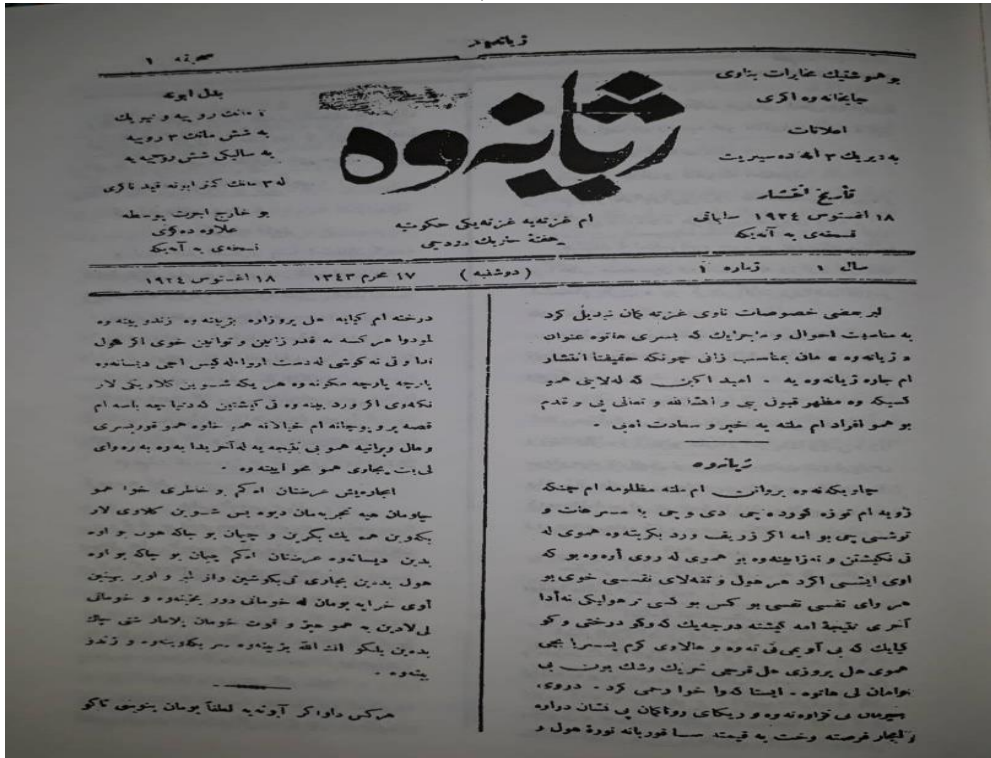 ژیانەوە
صحیفه ١
بو هموشتیك مخابرات بناوی
چاپخانەوە اکری
اعلانات
به دیریك ٣ آنه دەسیریت
تأریخ انتشار
١٨ اغستوس ١٩٢٤
نسخەی به آنەیکە
ژیانەوە
ام غزتەیە غزتەیکی حکومتیە
هفتەی
بدل ابونە
روپیە و نیویك
به شش مانك ٣ روپیە
به سالیکی شش روپیە یە
لە ٣ مانك کمتر ابونە قید ناکری
بو خارج اجرت پوسطە
علاوە دەکری
نسخەی به آنەیکە
سال ١ ژمارە ١ (دوشنبە) ١٧ محرم ١٣٤٣ ١٨ اغستوس ١٩٢٤
لبر بعضی خصوصات ناوی غزتە کەمان تبدیل کرد
به مناسبت احوال و ماجرایك که بسری هاتوە عنوان
ژیانەوە مان بمناسب زانی چونکە حقیقتاً انتشار
ام جارە ژیانەوە یە . امید اکین که لەلاینی همو
کسیکە وە مظهر قبول بی و انشا الله و تعالی پی و قدم
بو همو افراد ام ملتە به خیر و سعادت ابی .
ژیانەوە
چاویکەنەوە بروانن ام ملتە مظلومە ام چنکە
ژوپە ام توزە کوردە چی دی و چی با سرهات و
توشی چی بو امە اکر زریف ورد بکریتەوە هموی لە
تی نکیشتن و نەزانینەوە بو هموی لە روی آرەوە بو که
اوی ایشی اکرد هر هول و تقەلای نفسی خوی بو
هر وای نفسی نفسی بو کس بو کسی تر هولیکی نەآدا
آخری نتیجە امە کیشتە درجەیك که وکو درختی وکو
کیایك که بی آویی تی نەوە و هالاوی کرم بسریا بچی
هموی هل پروزی هل قرچی خریك وشك بون بی
خوامان لی هاتوە . ایستا کەوا خوا رحمی کرد . دروی
بی کراوەنەوە و ریکای روناکمان پی نشان دراوە
فرصتە وخت به قیمتە قوربانە نورە هول و
درختە ام کیایە هل پروزارە بژیینەوە زندو بینەوە
هر کسە به قدر زانین و توانین خوی اکر هول
ندا و تی نەکوشی لەدست کیس اچی دیسانەوە
پارچە پارچە هر یکە شوین کلاویکی لار
نکەوی اکر ورد بینەوە تی کیشتین لە دنیا چە باسە ام
قصە پر و پوچانە ام خیالانە همو خاوە همو قوربسری
و مال ویرانیە همو بی نتیجە یە لە آخر بدا بەوە بە رەوای
لی بت بیجاری همو محو ابینەوە .
ایجارەیش عرضتان اکەم و خاطری خوا همو
چاومان هیە تجربەمان دیوە بس شوین کلاوی لار
بکەوین همو یك بکرین و چیمان بو چاکە هول بو اوە
بدین دیسانەوە عرضتان اکەم چیمان بو چاکە بو اوە
هول بدین بیجاری تی بکوشین واز لبر و اوبر بینین
آوی خرابە بومان لە خومانی دور بخینەوە و خومانی
لی لادین به همو هیز و قوت خومان پلامار شتی چاك
بدەین بلکو انشاالله بژیینەوە سر بکاوینەوە و زندو
بینەوە .
هرکس داواکر آبونەیە لطفاً بومان بنوسی تاکو